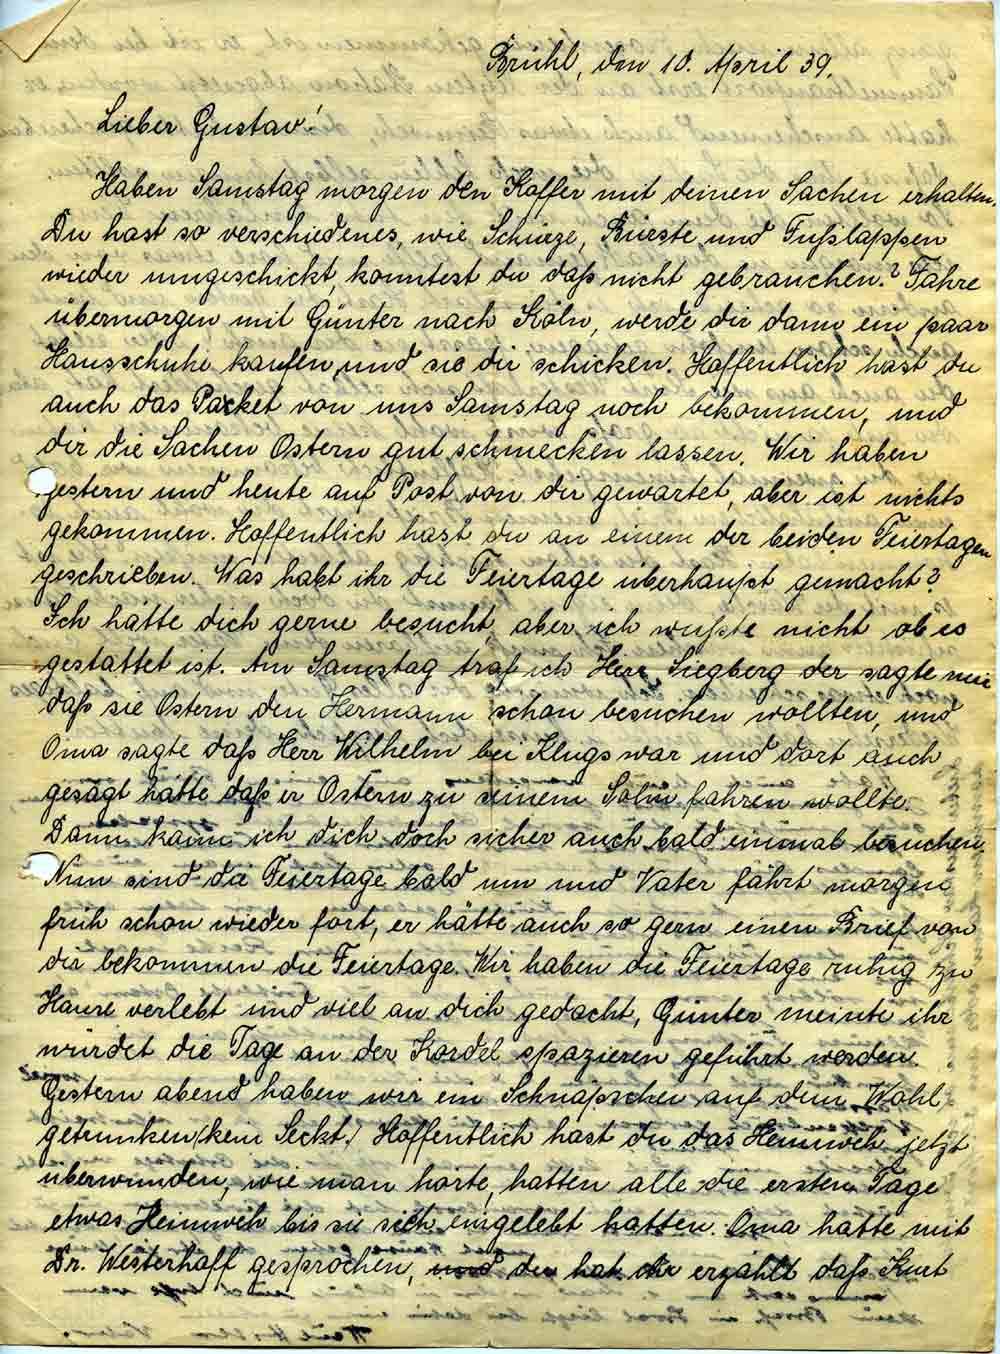 Brühl, den 10. April 39.
Lieber Gustav!
Haben Samstag morgen den Koffer mit deinen Sachen erhalten.
Du hast so verschiedenes, wie Schürze, Bürste und Fußlappen
wieder umgeschickt, konntest du daß nicht gebrauchen? Fahre
übermorgen mit Günter nach Köln, werde dir dann ein paar
Hausschuhe kaufen und sie dir schicken. Hoffentlich hast du
auch das Packet von uns Samstag noch bekommen, und
dir die Sachen Ostern gut schmecken lassen. Wir haben
gestern und heute auf Post von dir gewartet, aber ist nichts
gekommen. Hoffentlich hast du an einem der beiden Feiertagen
geschrieben. Was habt ihr die Feiertage überhaupt gemacht?
Ich hätte dich gerne besucht, aber ich wußte nicht ob es
gestattet ist. Am Samstag traf ich Herr Siegberg der sagte mir
daß sie Ostern den Hermann schon besuchen wollten, und
Oma sagte daß Herr Wilhelm bei Klugs war und dort auch
gesagt hätte daß er Ostern zu seinem Sohn fahren wollte.
Dann kann ich dich doch sicher auch bald einmal besuchen.
Nun sind die Feiertage bald um und Vater fährt morgen
früh schon wieder fort, er hätte auch so gern einen Brief von
dir bekommen die Feiertage. Wir haben die Feiertage ruhig zu
Hause verlebt und viel an dich gedacht, Günter meinte ihr
würdet die Tage an der Kordel spazieren geführt werden.
Gestern abend haben wir ein Schnäpschen auf dein Wohl
getrunken (kein Seckt.) Hoffentlich hast du das Heimweh jetzt
überwunden, wie man hörte, hatten alle die ersten Tage
etwas Heimweh bis sie sich eingelebt hatten. Oma hatte mit
Dr. Westerhoff gesprochen, und der hat erzählt daß Kurt